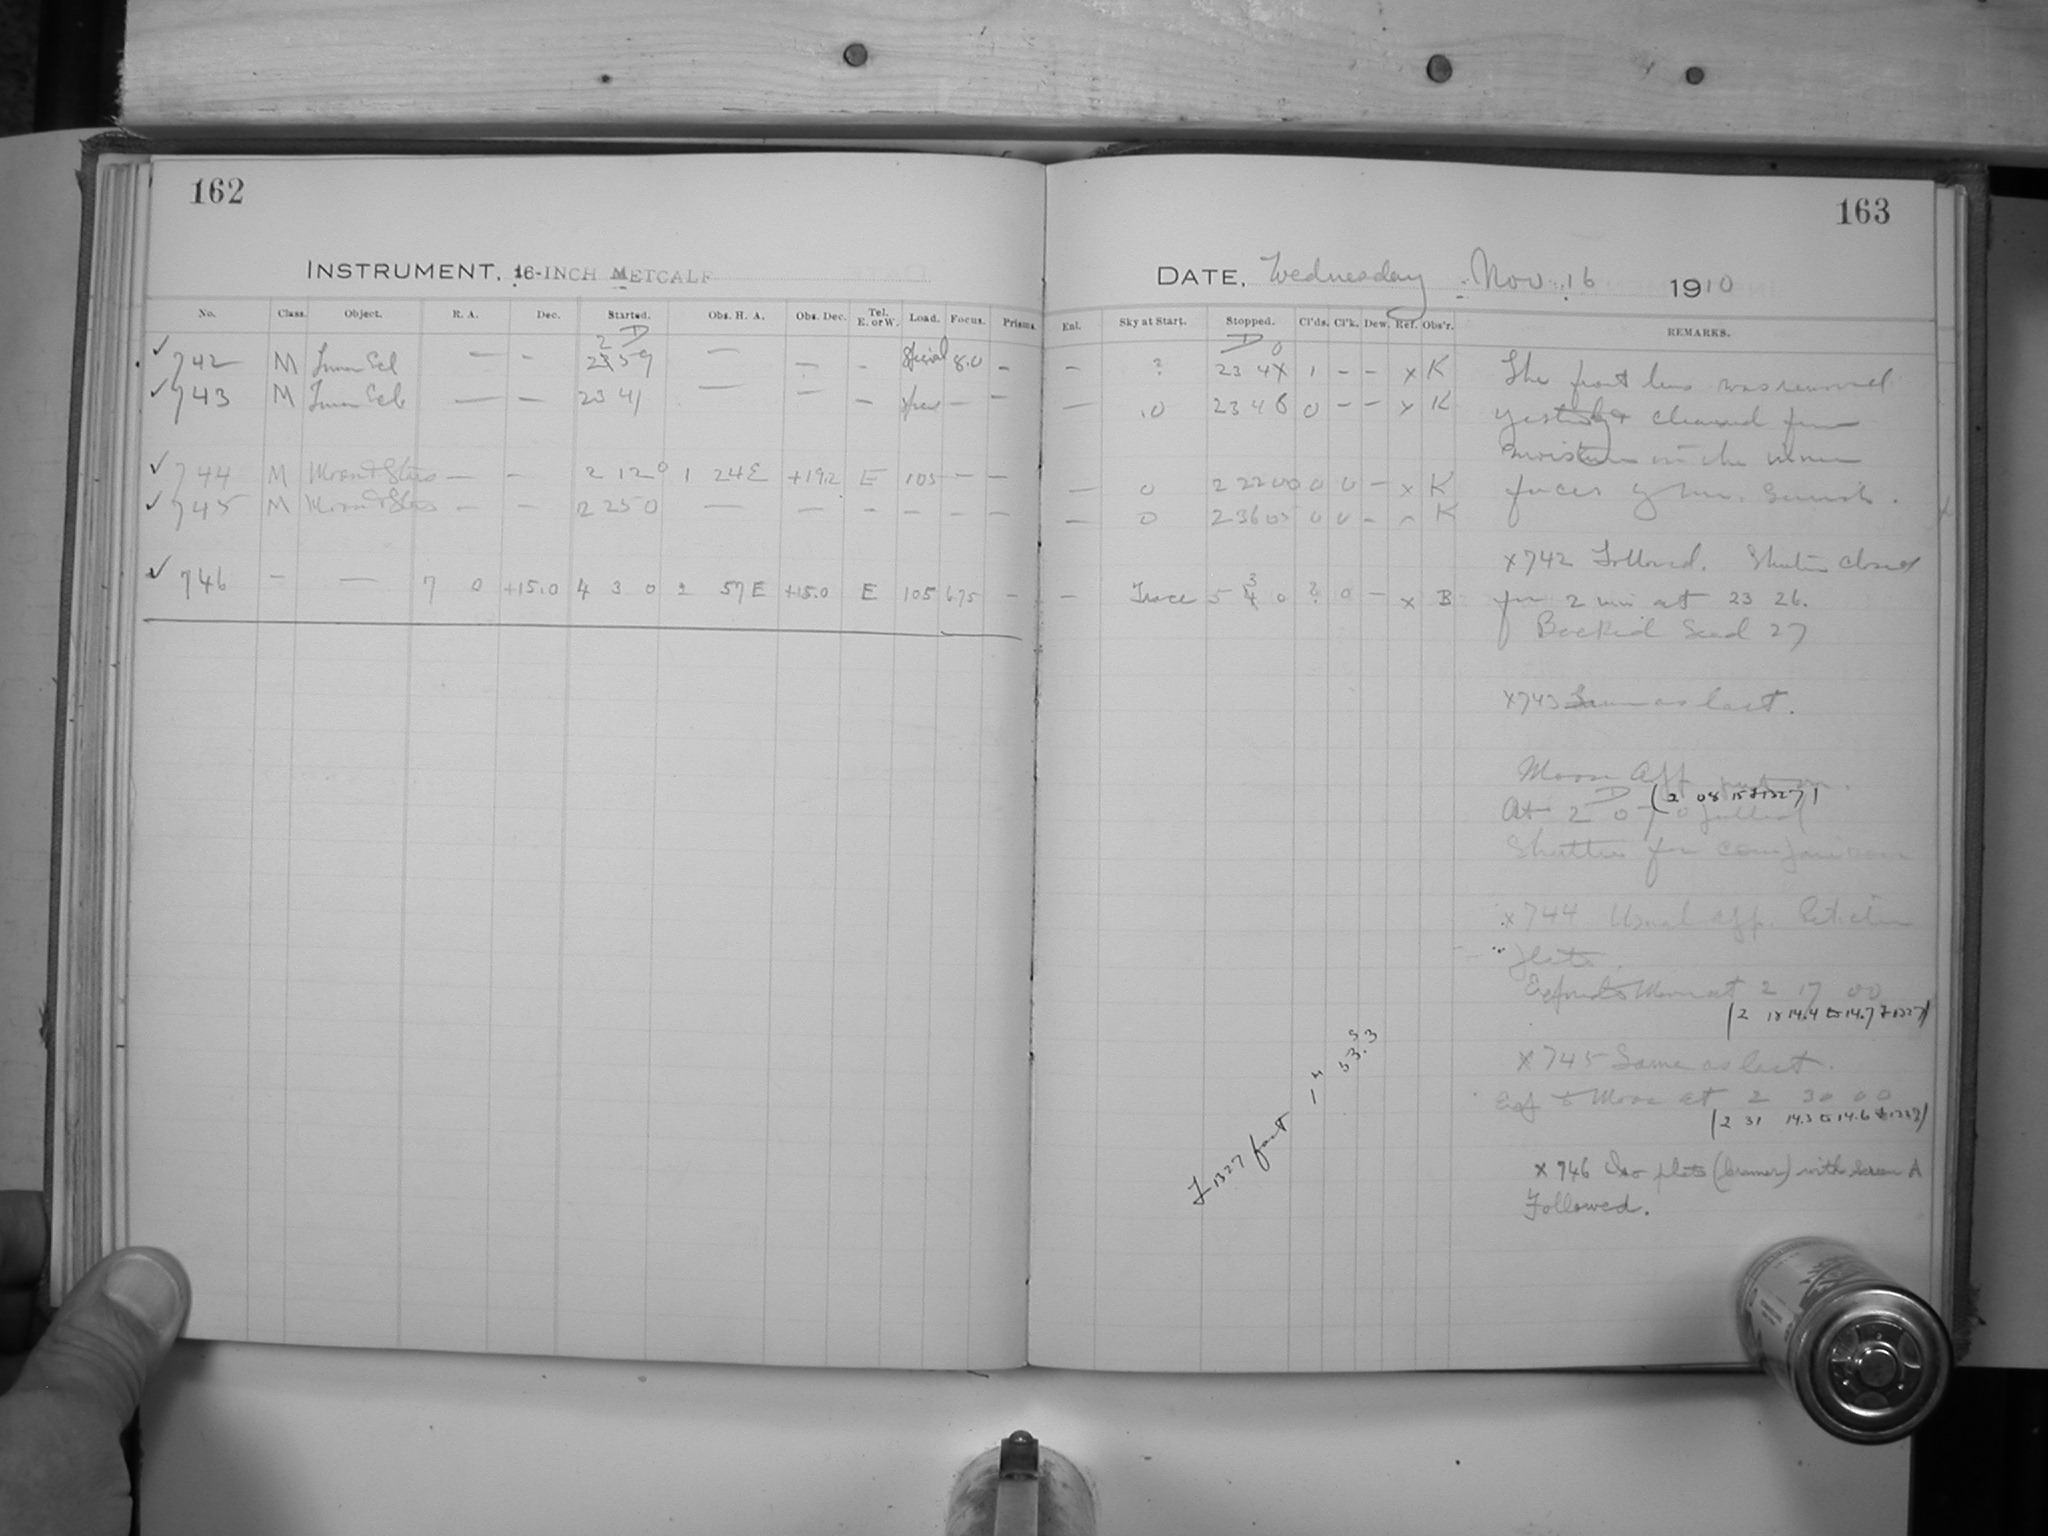 162
INSTRUMENT, 16-INCH METCALF
No. Class. Object. R. A. Dec. Started. Obs. H. A. Obs. Dec. Tel. E. or W. Load. Focus. Prisms.
742 M — - — — - 8.0 -
743 M — — 23 41 — — — — —
744 M Moon & Stars — — 2 12 0 1 24 E +19.2 E 105 — —
745 M Moon & Stars — — 2 25 0 — — — — — —
746 — — 7 0 +15.0 4 3 0 2 57 E +15.0 E 105 6.75 —
163
DATE, Wednesday Nov. 16 1910
Enl. Sky at Start. Stopped. Cl'ds. Cl'k. Dew. Ref. Obs'r. REMARKS.
— ? 1 — — x K
— 10 23 46 0 — — x K
— 0 2 22 00 0 0 — x K
— 0 2 36 05 0 0 — K
— Trace 5 3 0 ? 0 — x B
The front lens was removed
cleaned from
moisture on the inner
faces
x742 Followed. Shutter closed
for 2 min at 23 26.
Backed Seed 27
x743 Same as last.
Moon
At 2 0
Shutter for comparison
x744 Usual app.
plate.
Exposed to Moon at 2 17 00
(2 18 14.4 to 14.7 F1327)
x745 Same as last.
Exp to Moon at 2 30 00
(2 31 14.3 to 14.6 F1327)
x 746 Iso plate (Cramer) with screen A
Followed.
F1327 fast 1 53.3